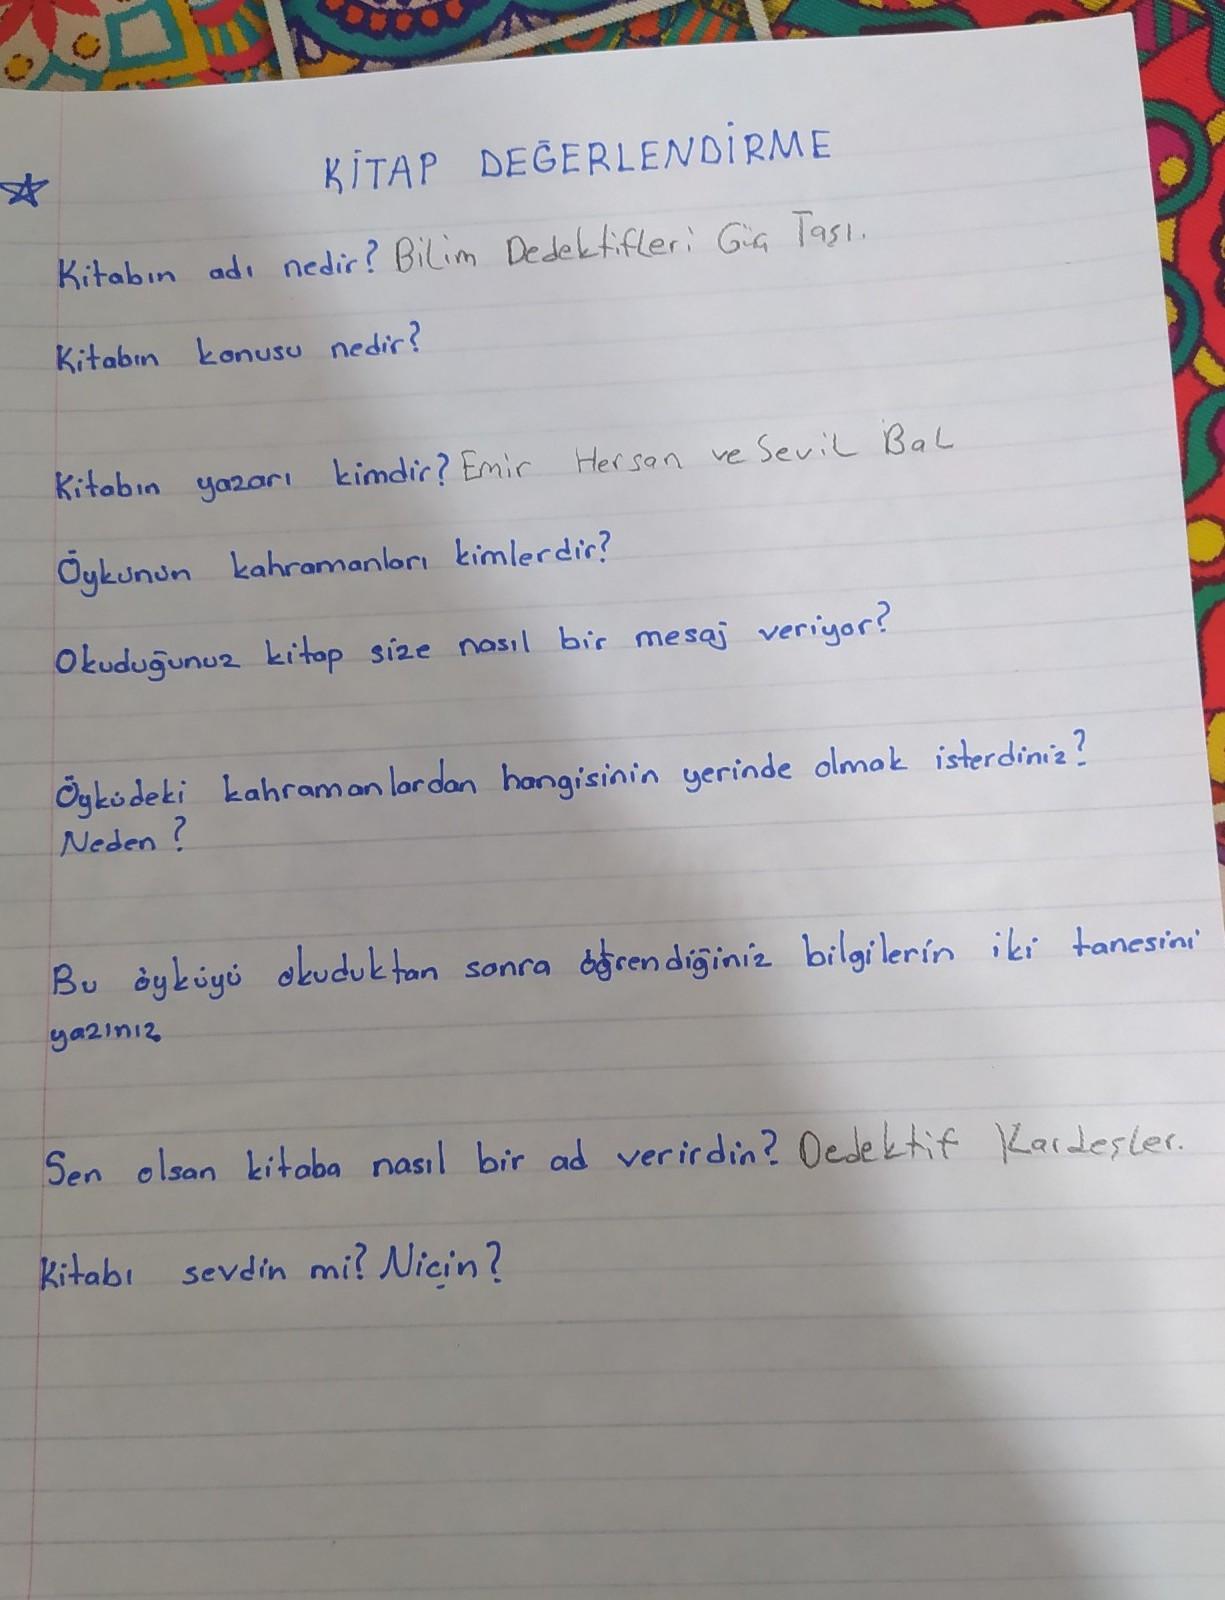 KİTAP DEĞERLENDİRME
Kitabın adı nedir? Bilim Dedektifleri Güç Taşı.
Kitabın konusu nedir?
Kitabın yazarı kimdir? Emir Hersan ve Sevil Bal
Öykünün kahramanları kimlerdir?
Okuduğunuz kitap size nasıl bir mesaj veriyor?
Öyküdeki kahramanlardan hangisinin yerinde olmak isterdiniz?
Neden?
Bu öyküyü okuduktan sonra öğrendiğiniz bilgilerin iki tanesini
yazınız
Sen olsan kitaba nasıl bir ad verirdin? Dedektif Kardeşler.
Kitabı sevdin mi? Niçin?